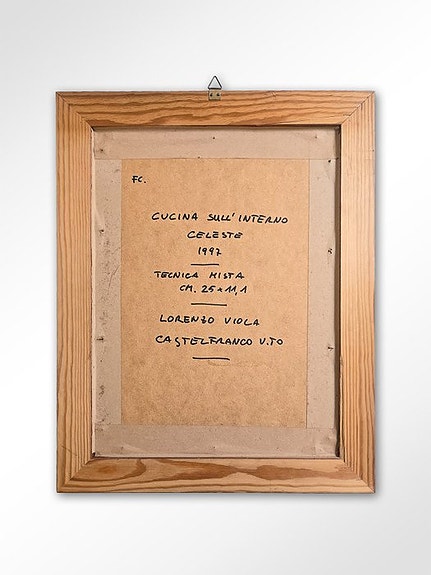 FC.
CUCINA SULL'INTERNO
CELESTE
1997
TECNICA MISTA
CM. 25 x 11,1
LORENZO VIOLA
CASTELFRANCO V.TO